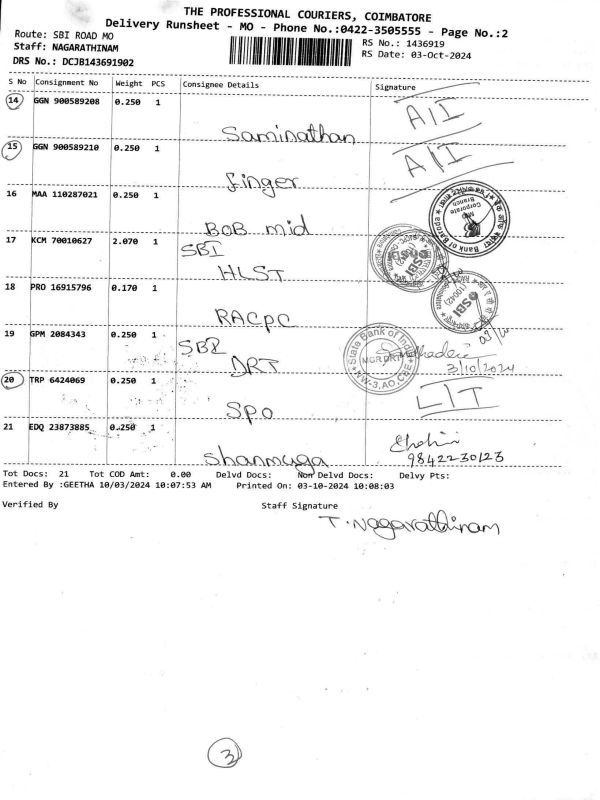 THE PROFESSIONAL COURIERS, COIMBATORE
Delivery Runsheet - MO - Phone No.:0422-3505555 - Page No.:2
Route: SBI ROAD MO
Staff: NAGARATHINAM
DRS No.: DCJB143691902
RS No.: 1436919
RS Date: 03-Oct-2024
S No Consignment No Weight PCS Consignee Details Signature
14 GGN 900589208 0.250 1 Saminathan A/I
15 GGN 900589210 0.250 1 finger A/I
16 MAA 110287021 0.250 1 BOB mid
Bank of Baroda
Corporate Branch
17 KCM 70010627 2.070 1 SBI HLST
SBI
18 PRO 16915796 0.170 1 RACPC
SBI
19 GPM 2084343 0.250 1 SBI DRT
State Bank of India
3/10/2024
20 TRP 6424069 0.250 1 SPO L/T
21 EDQ 23873885 0.250 1 Shanmuga
9842230123
Tot Docs: 21 Tot COD Amt: 0.00 Delvd Docs: Non Delvd Docs: Delvy Pts:
Entered By :GEETHA 10/03/2024 10:07:53 AM Printed On: 03-10-2024 10:08:03
Verified By Staff Signature
T. Nagarathinam
3